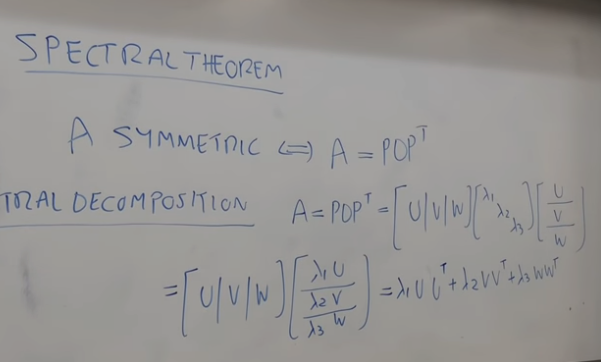 SPECTRAL THEOREM
A SYMMETRIC ⇔ A = PDP^T
TRAL DECOMPOSITION A = PDP^T = [U|V|W] [λ1 λ2 λ3] [U/V/W]
= [U|V|W] [λ1 U/λ2 V/λ3 W] = λ1 U U^T + λ2 V V^T + λ3 W W^T